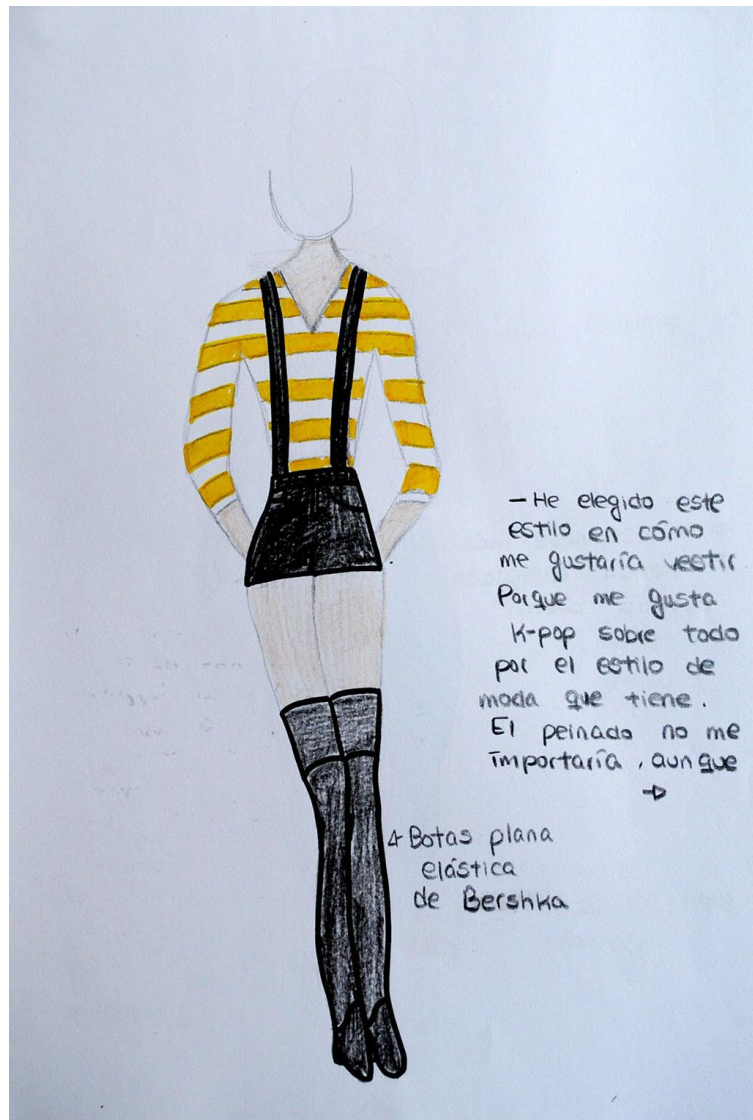 - He elegido este
estilo en cómo
me gustaría vestir
Porque me gusta
K-pop sobre todo
por el estilo de
moda que tiene.
El peinado no me
importaría, aunque
→
Botas plana
elástica
de Bershka